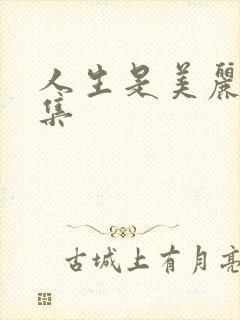 人生是美麗
集
古城上有月亮